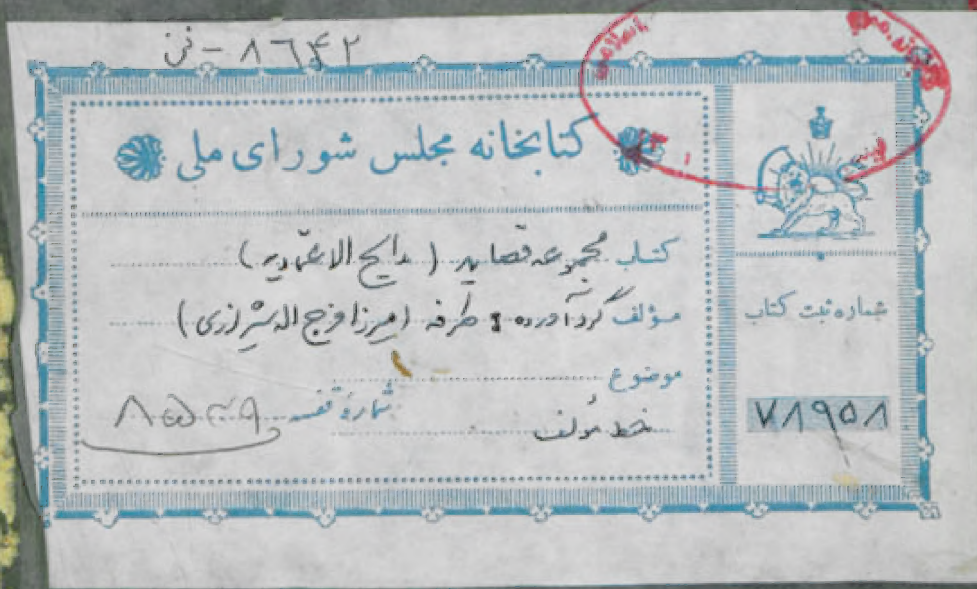 ۸۶۴۲ - فن
کتابخانه مجلس شورای ملی
کتاب مجموعه قصاید (مدایح الاعتمادیه)
مؤلف گردآورده : طرفه (میرزا فرج الله شیرازی)
موضوع
شمارهٔ قفسه ۸۵۳۹
خط مؤلف
شماره ثبت کتاب
۷۸۹۵۸